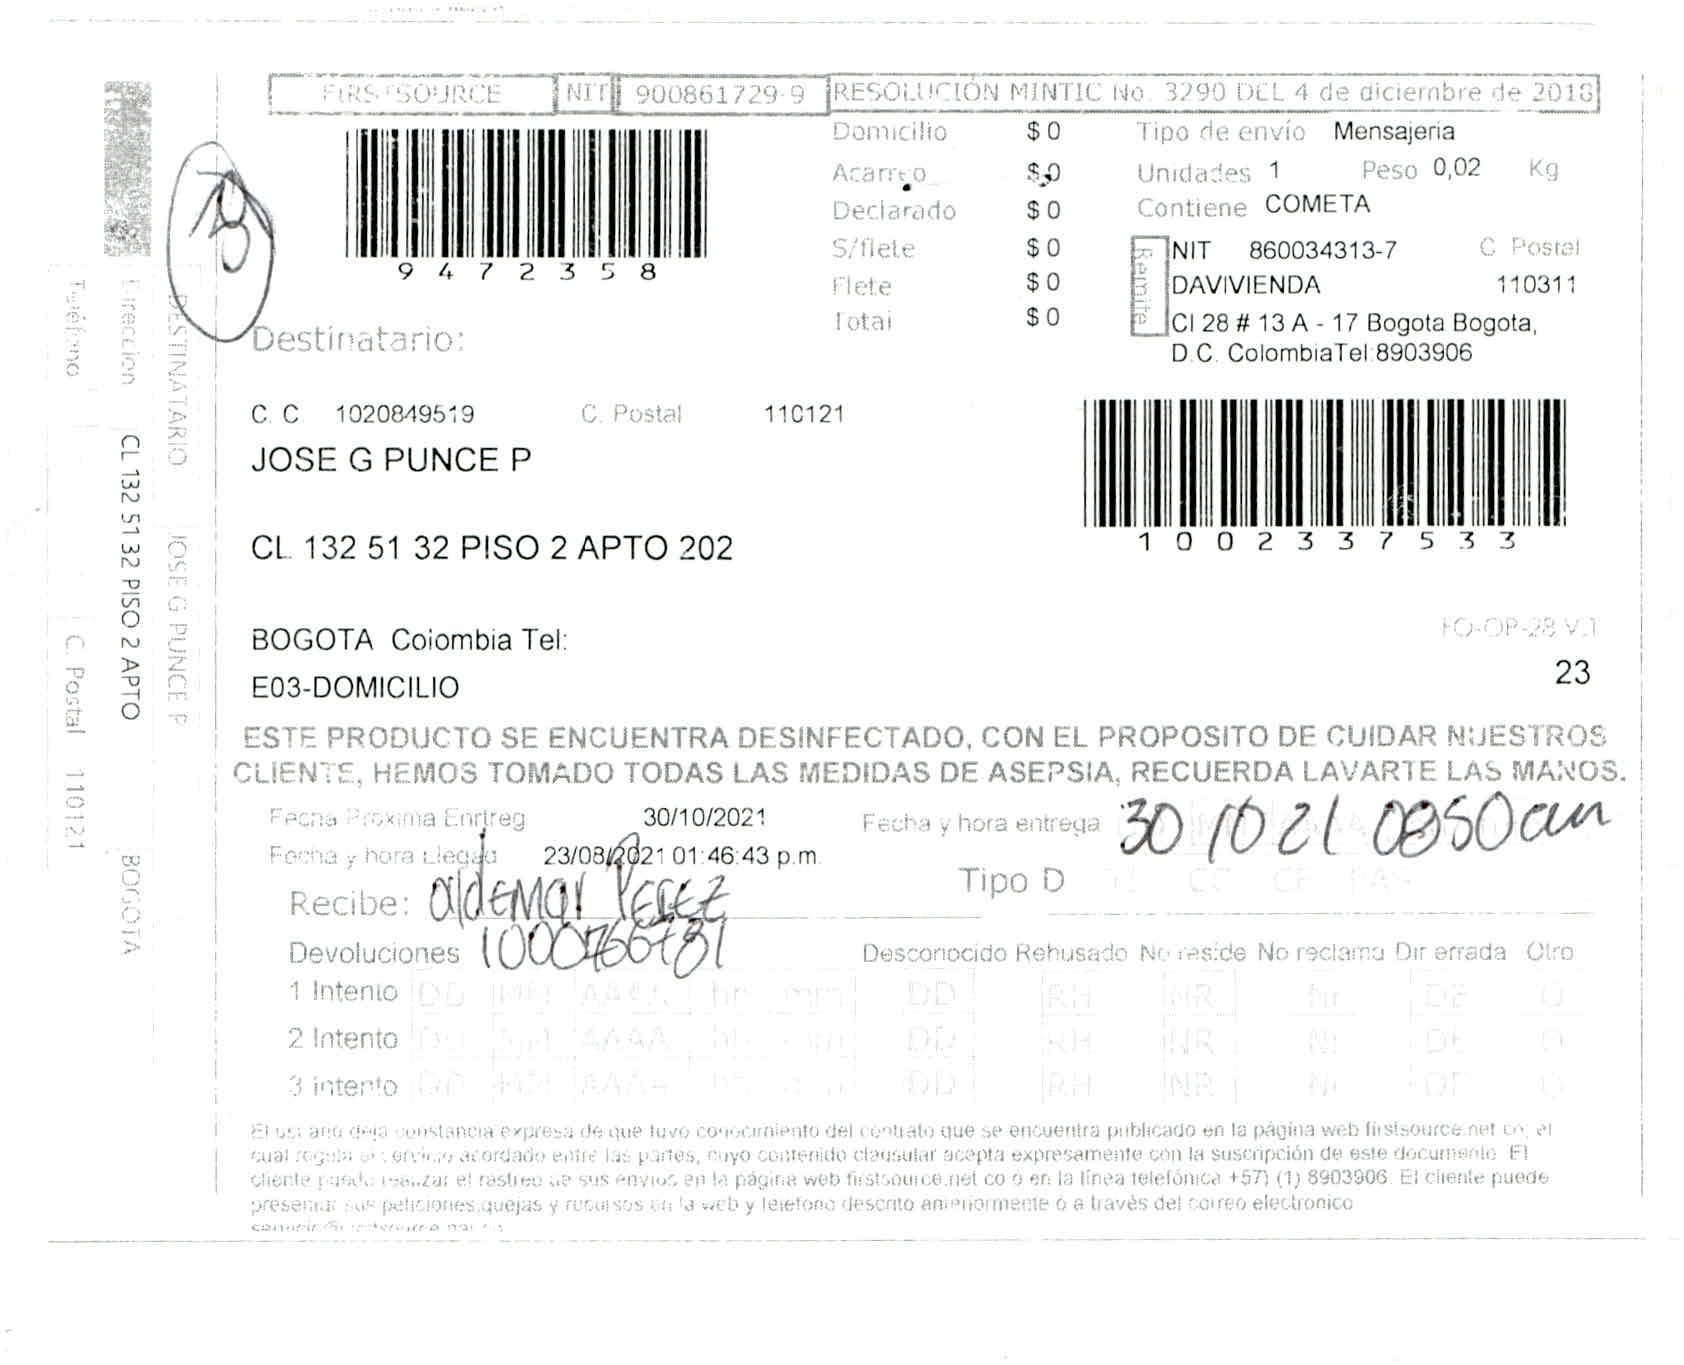 FIRSTSOURCE NIT 900861729-9 RESOLUCIÓN MINTIC No. 3290 DEL 4 de diciembre de 2018
Domicilio $ 0 Tipo de envío Mensajeria
Acarreo $ 0 Unidades 1 Peso 0,02 Kg
Declarado $ 0 Contiene COMETA
S/flete $ 0
Flete $ 0
Total $ 0
9472358
Remite
NIT 860034313-7 C Postal
DAVIVIENDA 110311
Cl 28 # 13 A - 17 Bogota Bogota,
D.C. ColombiaTel:8903906
Destinatario:
C. C. 1020849519 C. Postal 110121
JOSE G PUNCE P
1002337533
CL 132 51 32 PISO 2 APTO 202
BOGOTA Colombia Tel:
FO-OP-28 V.1
E03-DOMICILIO
23
ESTE PRODUCTO SE ENCUENTRA DESINFECTADO, CON EL PROPOSITO DE CUIDAR NUESTROS
CLIENTE, HEMOS TOMADO TODAS LAS MEDIDAS DE ASEPSIA, RECUERDA LAVARTE LAS MANOS.
Fecha Proxima Entreg 30/10/2021 Fecha y hora entrega 30 10 21 0850am
Fecha y hora Llegada 23/08/2021 01:46:43 p.m.
Tipo D CC CE PAS
Recibe: aldemar Perez
1000766781
Devoluciones Desconocido Rehusado No reside No reclama Dir errada Otro
1 Intento DD MM AAAA hh mm DD RH NR Nr DE O
2 Intento DD MM AAAA hh mm DD RH NR Nr DE O
3 intento DD MM AAAA hh mm DD RH NR Nr DE O
El usuario deja constancia expresa de que tuvo conocimiento del contrato que se encuentra publicado en la página web firstsource.net co, el
cual regula el servicio acordado entre las partes, cuyo contenido clausular acepta expresamente con la suscripción de este documento. El
cliente puede realizar el rastreo de sus envios en la página web firstsource.net co o en la línea telefónica +57) (1) 8903906. El cliente puede
presentar sus peticiones,quejas y recursos en la web y telefono descrito anteriormente o a través del correo electronico
DESTINATARIO JOSE G PUNCE P
Direccion CL 132 51 32 PISO 2 APTO BOGOTA
Teléfono C. Postal 110121